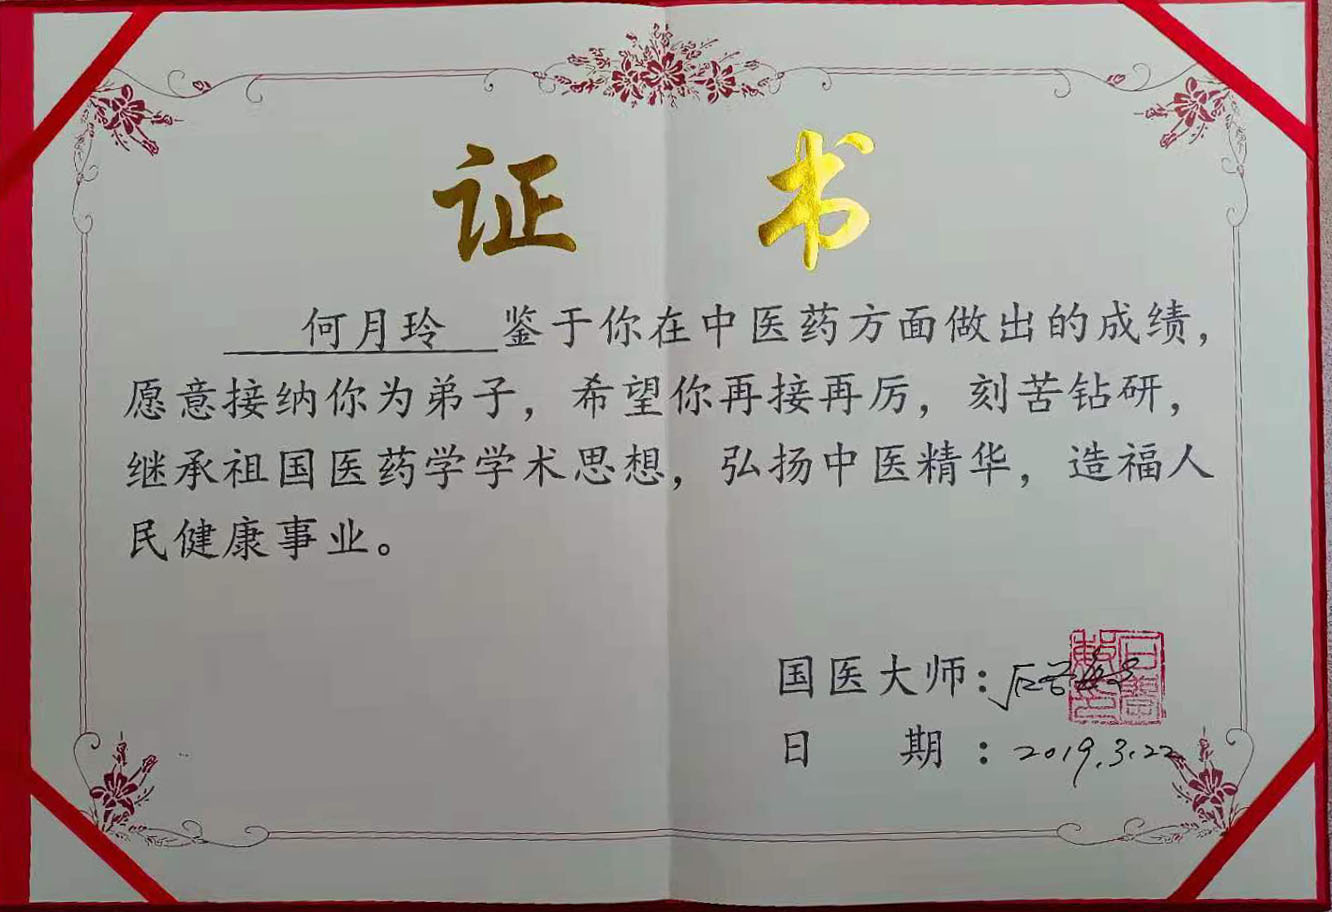 证 书
何月玲 鉴于你在中医药方面做出的成绩，
愿意接纳你为弟子，希望你再接再厉，刻苦钻研，
继承祖国医药学学术思想，弘扬中医精华，造福人
民健康事业。
国医大师：
日 期：2019.3.22